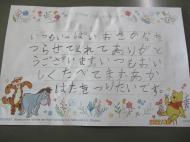 いつもいっぱいおさかなを
つらせてくれてありがと
うございます。いつもおい
しくたべてますあか
はたをつりたいです。